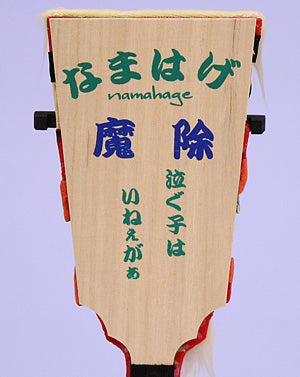 なまはげ
namahage
魔除
泣ぐ子は
いねぇがぁ